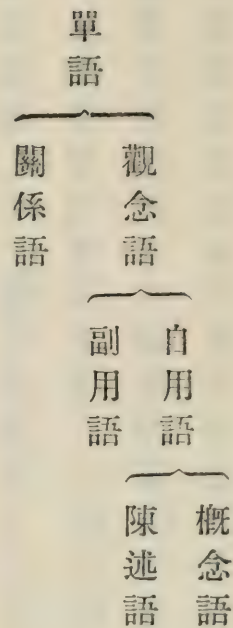 單語
觀念語
關係語
自用語
副用語
概念語
陳述語